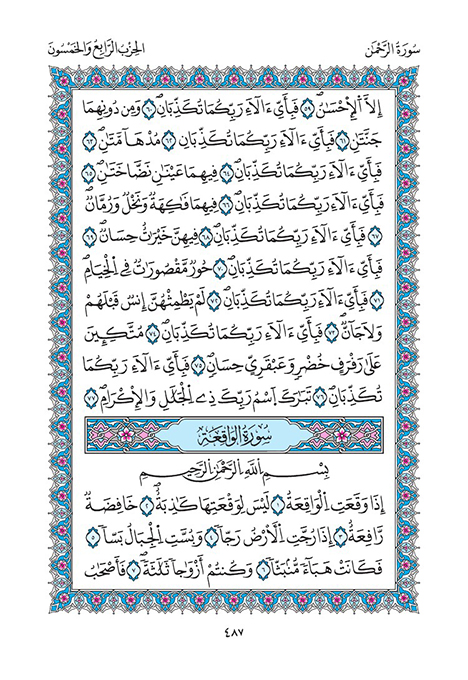 سُورَةُ الرَّحْمَٰن
الحِزْبُ الرَّابِعُ وَالخَمْسُون
إِلَّا اَ۬لْإِحْسَٰنُ ٥٩ فَبِأَيِّ ءَالَآءِ رَبِّكُمَا تُكَذِّبَانِ ٦٠ وَمِن دُونِهِمَا
جَنَّتَٰنِ ٦١ فَبِأَيِّ ءَالَآءِ رَبِّكُمَا تُكَذِّبَانِ ٦٢ مُدْهَآمَّتَٰنِ ٦٣
فَبِأَيِّ ءَالَآءِ رَبِّكُمَا تُكَذِّبَانِ ٦٤ فِيهِمَا عَيْنَٰنِ نَضَّاخَتَٰنِ ٦٥
فَبِأَيِّ ءَالَآءِ رَبِّكُمَا تُكَذِّبَانِ ٦٦ فِيهِمَا فَٰكِهَةٌ وَنَخْلٌ وَرُمَّانٌ
٦٧ فَبِأَيِّ ءَالَآءِ رَبِّكُمَا تُكَذِّبَانِ ٦٨ فِيهِنَّ خَيْرَٰتٌ حِسَانٌ ٦٩
فَبِأَيِّ ءَالَآءِ رَبِّكُمَا تُكَذِّبَانِ ٧٠ حُورٌ مَّقْصُورَٰتٌ فِي اِ۬لْخِيَامِ
٧١ فَبِأَيِّ ءَالَآءِ رَبِّكُمَا تُكَذِّبَانِ ٧٢ لَمْ يَطْمِثْهُنَّ إِنسٌ قَبْلَهُمْ
وَلَا جَآنٌّ ٧٣ فَبِأَيِّ ءَالَآءِ رَبِّكُمَا تُكَذِّبَانِ ٧٤ مُتَّكِـِٔينَ
عَلَىٰ رَفْرَفٍ خُضْرٍ وَعَبْقَرِيٍّ حِسَانٍ ٧٥ فَبِأَيِّ ءَالَآءِ رَبِّكُمَا
تُكَذِّبَانِ ٧٦ تَبَٰرَكَ اَ۪سْمُ رَبِّكَ ذِے اِ۬لْجَلَٰلِ وَالْإِكْرَامِ ٧٧
سُورَةُ الْوَاقِعَةِ
بِسْمِ اللَّهِ الرَّحْمَٰنِ الرَّحِيمِ
إِذَا وَقَعَتِ اِ۬لْوَاقِعَةُ ١ لَيْسَ لِوَقْعَتِهَا كَاذِبَةٌ ٢ خَافِضَةٌ
رَّافِعَةٌ ٣ إِذَا رُجَّتِ اِ۬لْأَرْضُ رَجّاً ٤ وَبُسَّتِ اِ۬لْجِبَالُ بَسّاً ٥
فَكَانَتْ هَبَآءً مُّنۢبَثّاً ٦ وَكُنتُمْ أَزْوَٰجاً ثَلَٰثَةً ٧ فَأَصْحَٰبُ
٤٨٧